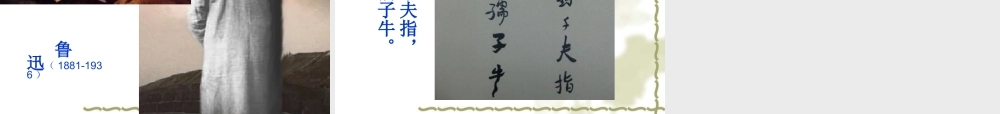 鲁
迅（1881-193
6）
夫指，
子牛。
子夫指
孺子牛